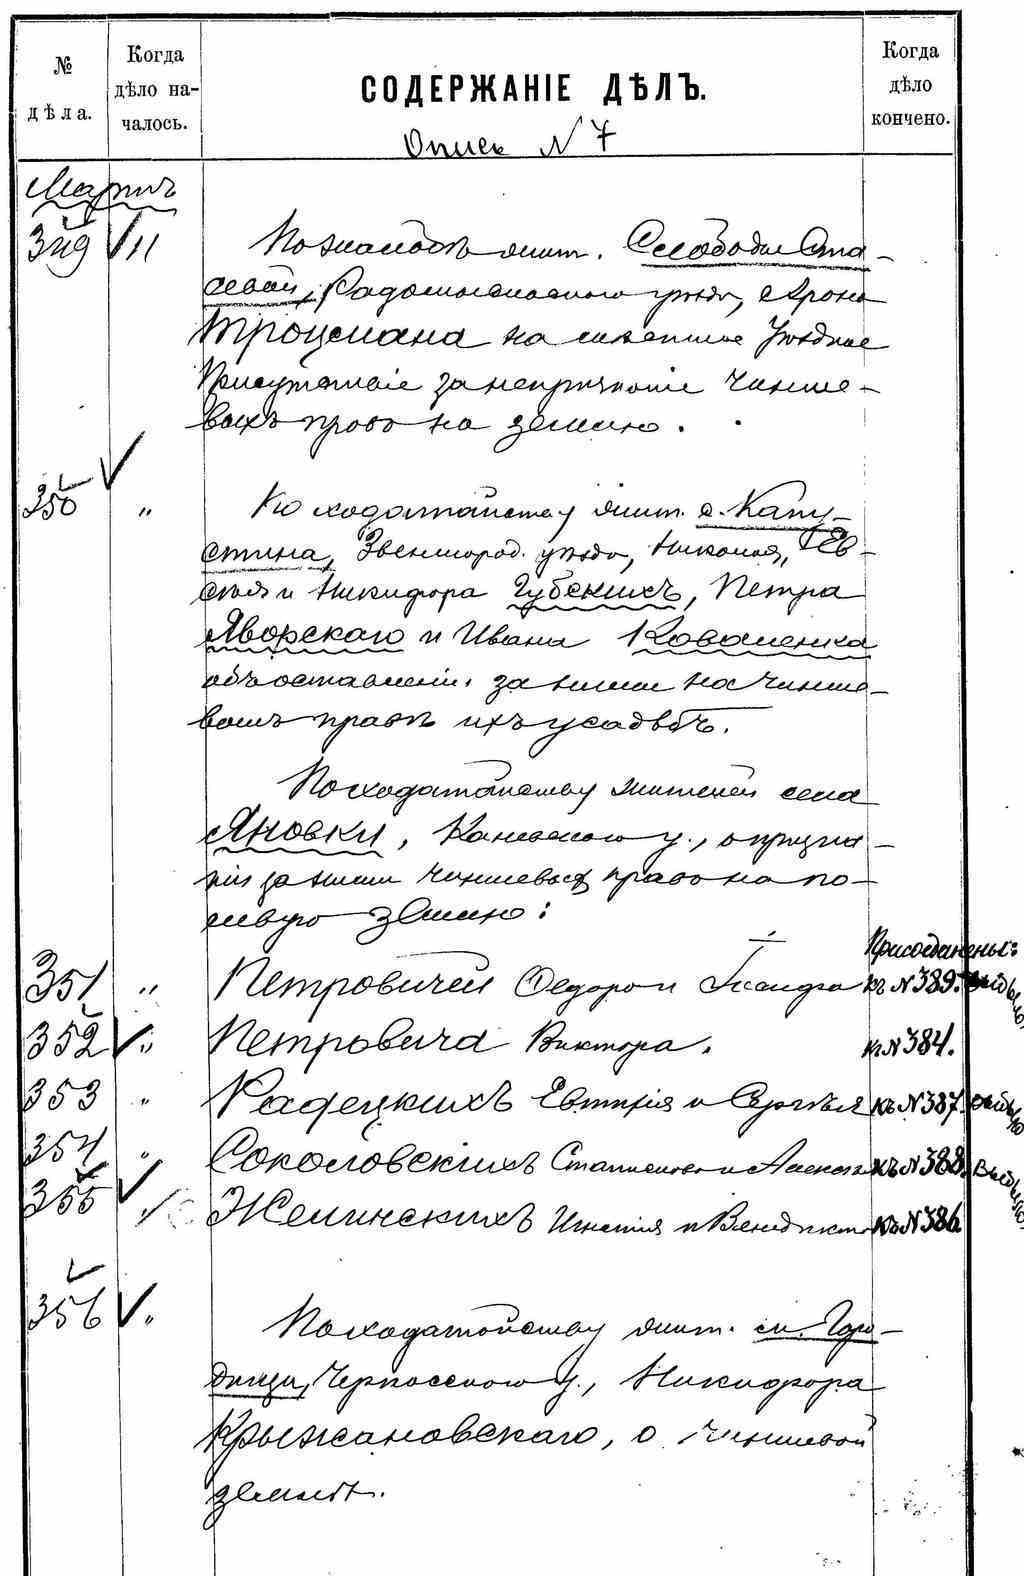 №
дѣла.
Когда
дѣло на-
чалось.
СОДЕРЖАНІЕ ДѢЛЪ.
Опись N 7
Когда
дѣло
кончено.
Мартъ
349 11 По жалобѣ жит. Слободы Ста-
Радомысльскаго уѣзда, Арона
Троцмана на Уѣздное
Присутствіе за чинше-
выхъ правъ на землю.
350 " По ходатайству жит. с. Капу-
стина, Звенигород. уѣзда, Николая, Ев-
сѣя и Никифора Губскихъ, Петра
Яворскаго и Ивана Коваленка
объ оставленіи за ними на чинше-
вомъ правѣ ихъ усадьбъ.
По ходатайству жителей села
Яновки, Каневскаго у., о призна-
ніи за ними чиншевыхъ правъ на по-
левую землю:
Присоединены:
351 " Петровичей Федора и къ N 389.
352 " Петровича Виктора. къ N 384.
353 " Радецкихъ Евтихія и Сергѣя къ N 387.
354 " Соколовскихъ къ N 388.
355 " Желинскихъ Игнатія и Венедикта къ N 386
356 " По ходатайству жит. м. Горо-
дища, Черкасскаго у., Никифора
Крыжановскаго, о чиншевой
землѣ.